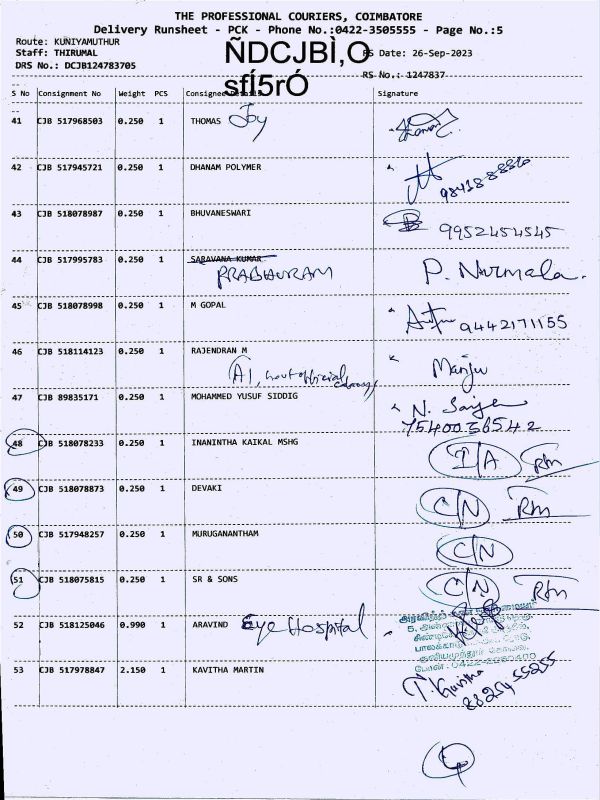 THE PROFESSIONAL COURIERS, COIMBATORE
Delivery Runsheet - PCK - Phone No.:0422-3505555 - Page No.:5
Route: KUNIYAMUTHUR
Staff: THIRUMAL ÑDCJBÌ,O Date: 26-Sep-2023
DRS No.: DCJB124783705 sfÍ5rÓ RS No.: 1247837
S No Consignment No Weight PCS Consignee Details Signature
41 CJB 517968503 0.250 1 THOMAS Joy
42 CJB 517945721 0.250 1 DHANAM POLYMER
43 CJB 518078987 0.250 1 BHUVANESWARI 9952454545
44 CJB 517995783 0.250 1 SARAVANA KUMAR
PRABHURAM P. Nirmala.
45 CJB 518078998 0.250 1 M GOPAL 9442171155
46 CJB 518114123 0.250 1 RAJENDRAN M Manju
A1,
47 CJB 89835171 0.250 1 MOHAMMED YUSUF SIDDIG N.
7540036542
48 CJB 518078233 0.250 1 INANINTHA KAIKAL MSHG I/A Rtn
49 CJB 518078873 0.250 1 DEVAKI C/N Rtn
50 CJB 517948257 0.250 1 MURUGANANTHAM C/N
51 CJB 518075815 0.250 1 SR & SONS C/N Rtn
52 CJB 518125046 0.990 1 ARAVIND Eye Hospital
53 CJB 517978847 2.150 1 KAVITHA MARTIN T. Kavitha